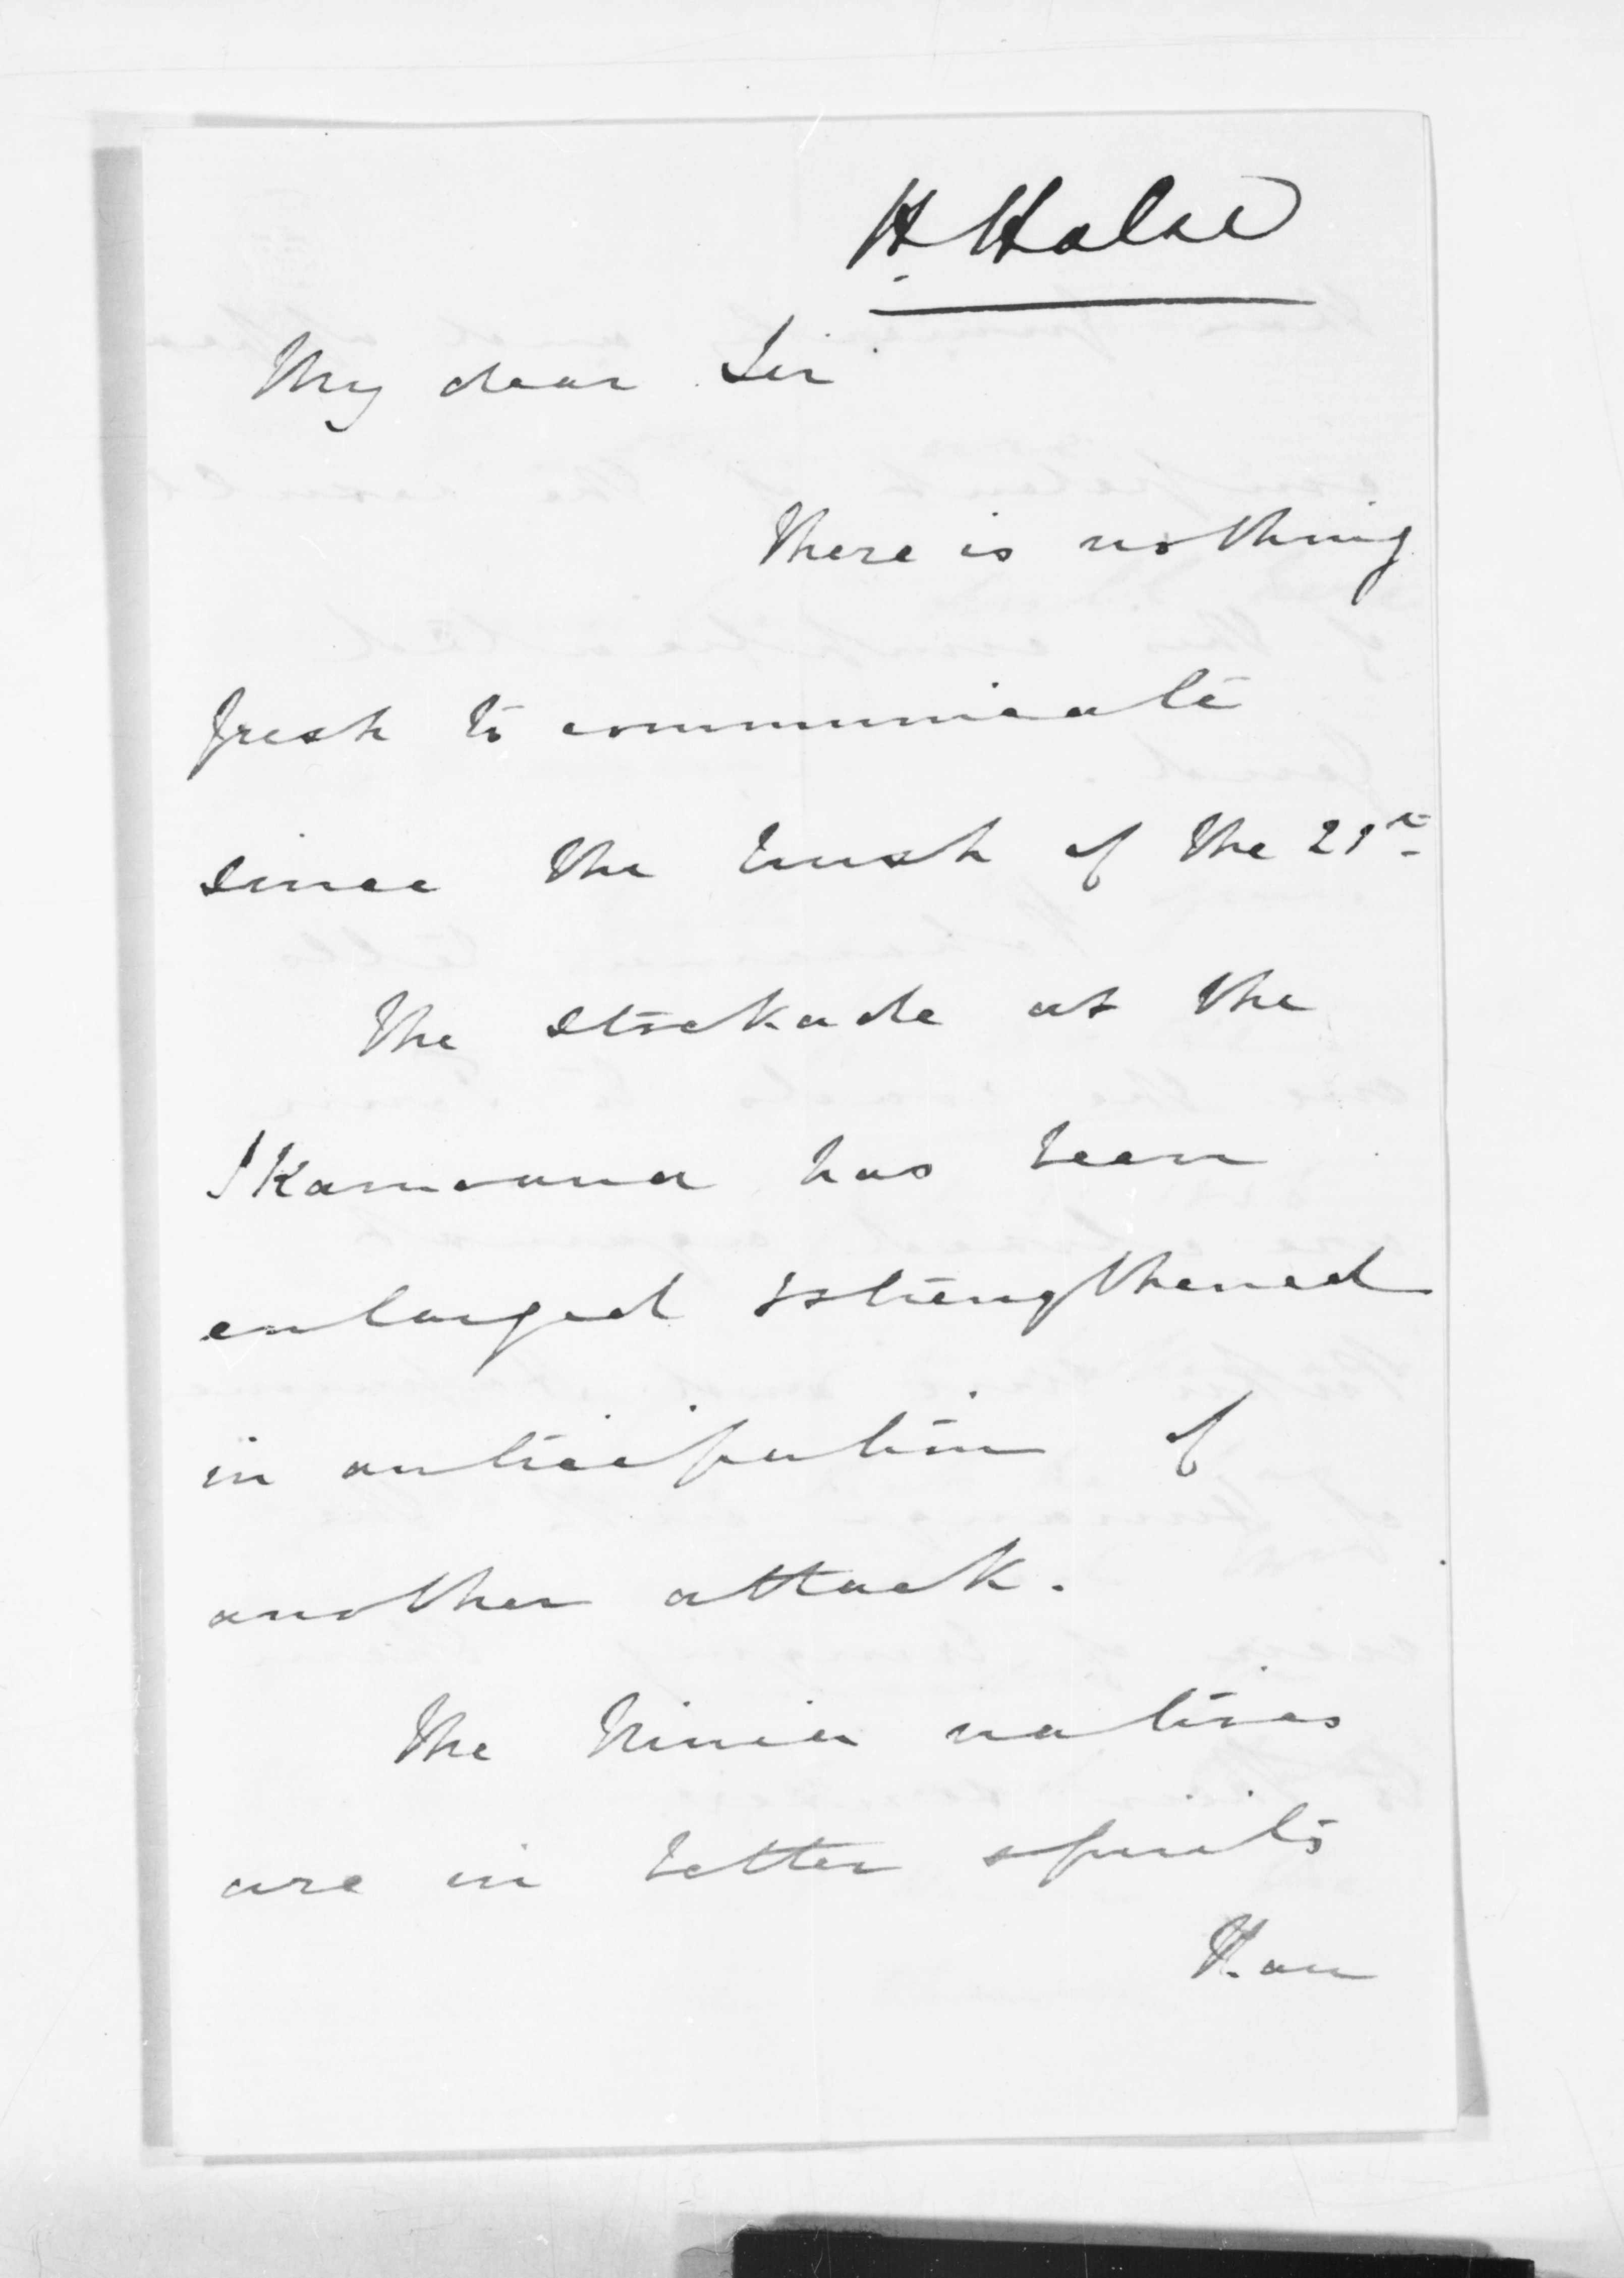 H Halse
My dear Sir
There is nothing
fresh to communicate
since the brush of the 21st
The stockade at the
Ikamoana has been
enlarged & strengthened
in anticipation of
another attack.
The Ninia natives
are in better spirits
than